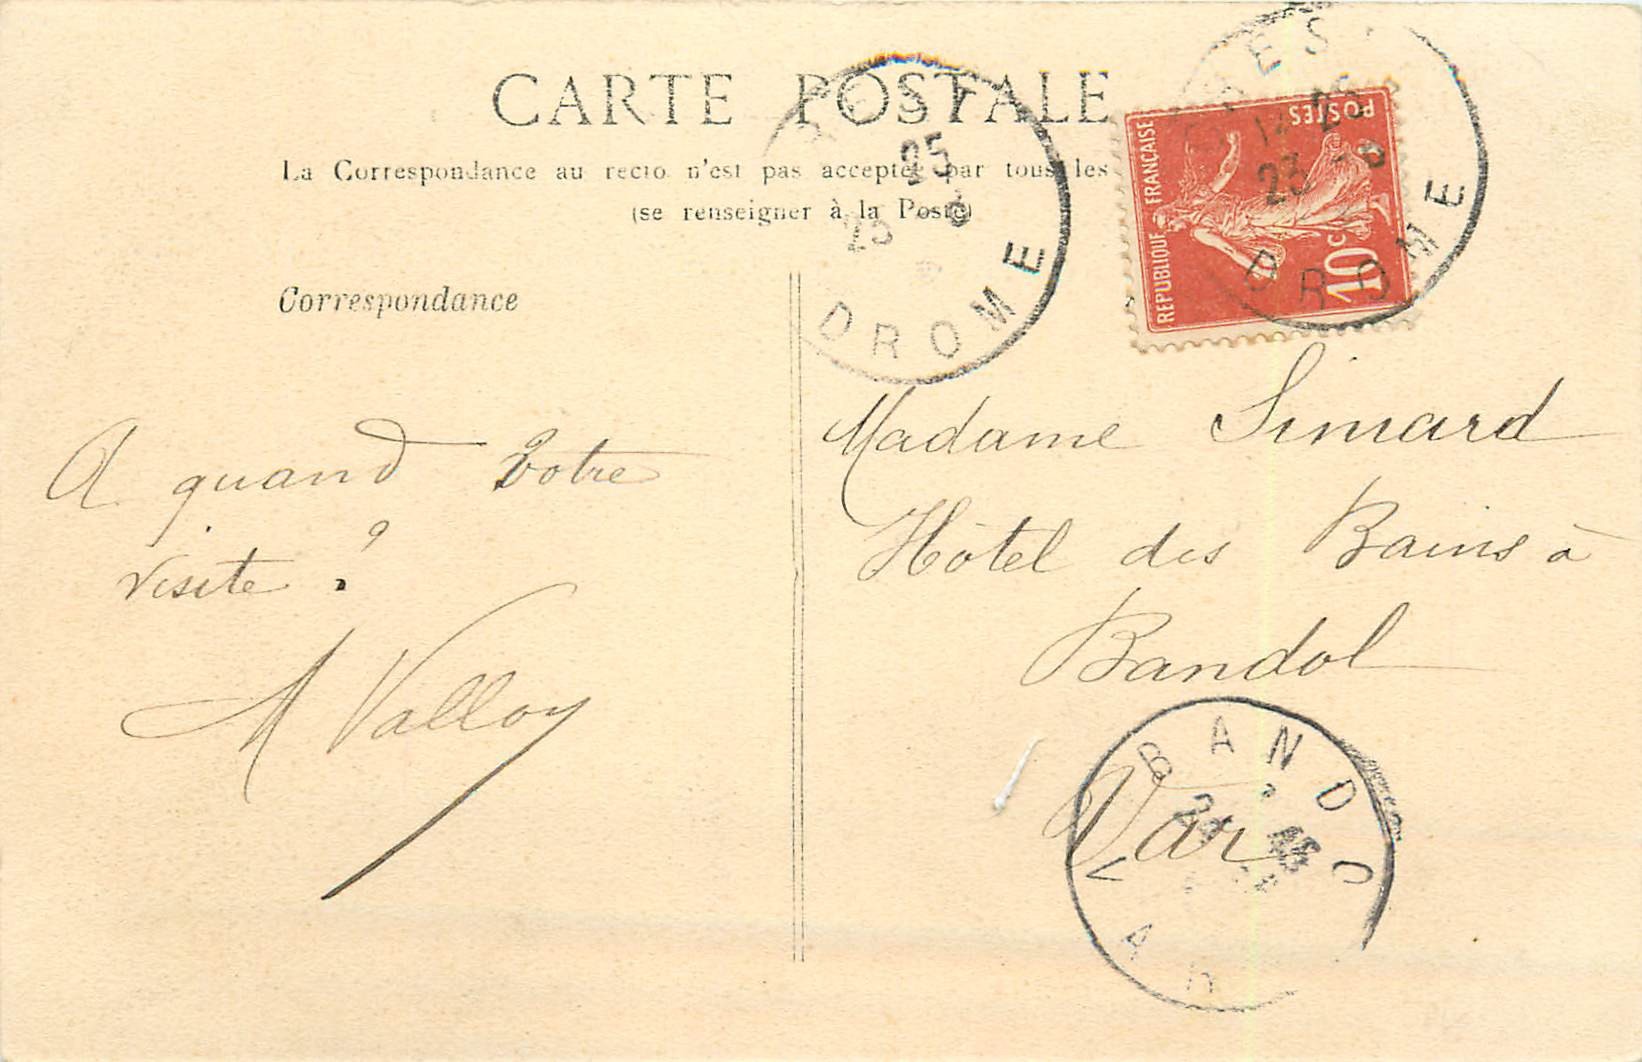 CARTE POSTALE
La Correspondance au recto n'est pas acceptée par tous les
(se renseigner à la Poste)
Correspondance
A quand votre
visite ?
A Valloy
REPUBLIQUE FRANÇAISE
POSTES
10c
25
DROME
23
DROME
Madame Simard
Hôtel des Bains à
Bandol
Var
BANDOL
VAR